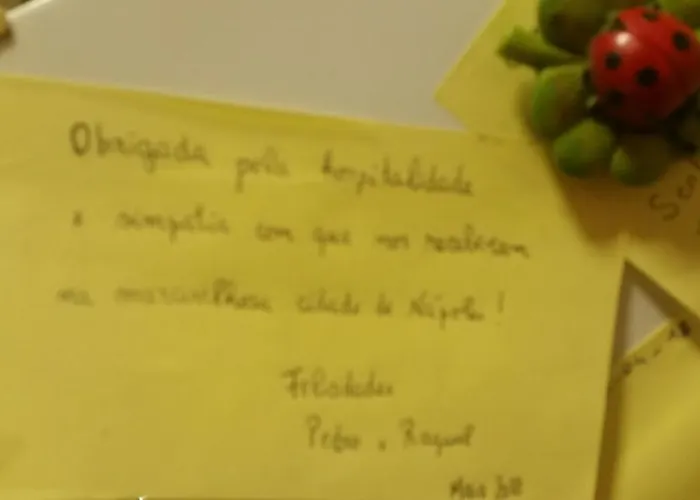 Obrigada pela hospitalidade
e simpatia com que nos receberam
na maravilhosa cidade de Nápoles!
Felicidades
Pedro e Raquel
Maio